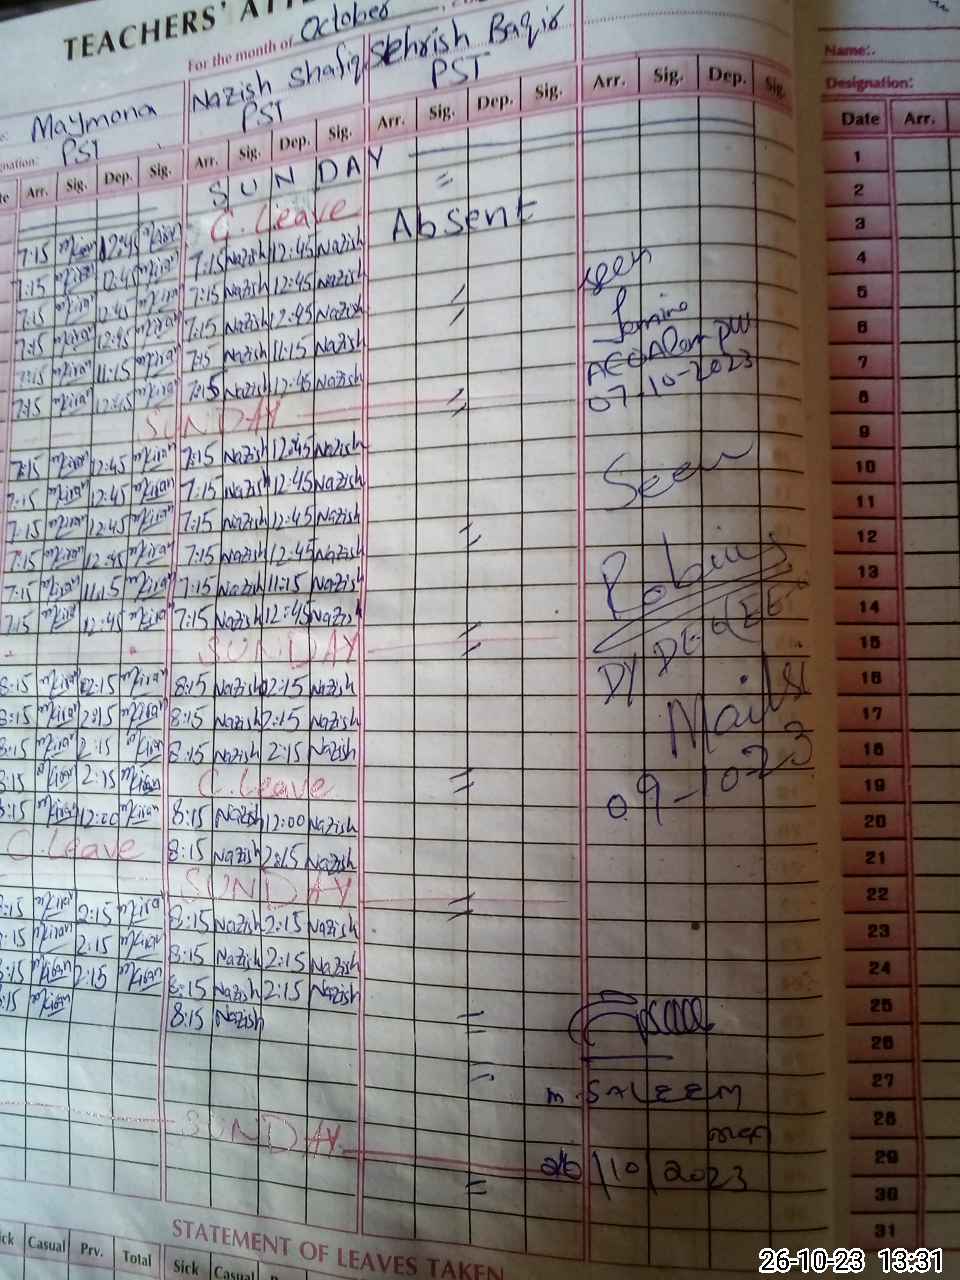 TEACHERS' ATTE
For the month of October
Maymona Nazish Shafiq Sehrish Baqir
Name:.
PST PST PST
nation:
Designation:
te Arr. Sig. Dep. Sig. Arr. Sig. Dep. Sig. Arr. Sig. Dep. Sig. Arr. Sig. Dep. Sig. Date Arr.
SUNDAY 1
= 2
7:15 mKiran 12:45 mKiran C. Leave Absent 3
7:15 mKiran 12:45 mKiran 7:15 Nazish 12:45 Nazish seen 4
7:15 mKiran 12:45 mKiran 7:15 Nazish 12:45 Nazish 5
7:15 mKiran 12:45 mKiran 7:15 Nazish 12:45 Nazish 6
7:15 mKiran 11:15 mKiran 7:15 Nazish 11:15 Nazish AEO 7
7:15 mKiran 12:45 mKiran 7:15 Nazish 12:45 Nazish 07-10-2023 8
SUNDAY 9
7:15 mKiran 12:45 mKiran 7:15 Nazish 12:45 Nazish Seen 10
7:15 mKiran 12:45 mKiran 7:15 Nazish 12:45 Nazish 11
7:15 mKiran 12:45 mKiran 7:15 Nazish 12:45 Nazish 12
7:15 mKiran 12:45 mKiran 7:15 Nazish 12:45 Nazish 13
7:15 mKiran 11:15 mKiran 7:15 Nazish 11:15 Nazish 14
7:15 mKiran 12:45 mKiran 7:15 Nazish 12:45 Nazish
SUNDAY DY DEO 15
8:15 mKiran 2:15 mKiran 8:15 Nazish 2:15 Nazish 16
8:15 mKiran 2:15 mKiran 8:15 Nazish 2:15 Nazish Mailsi 17
8:15 mKiran 2:15 mKiran 8:15 Nazish 2:15 Nazish 18
8:15 mKiran 2:15 mKiran C. Leave 09-10-23 19
8:15 mKiran 12:00 mKiran 8:15 Nazish 12:00 Nazish 20
C. Leave 8:15 Nazish 2:15 Nazish 21
SUNDAY 22
8:15 mKiran 2:15 mKiran 8:15 Nazish 2:15 Nazish 23
8:15 mKiran 2:15 mKiran 8:15 Nazish 2:15 Nazish 24
8:15 mKiran 2:15 mKiran 8:15 Nazish 2:15 Nazish 25
8:15 mKiran 8:15 Nazish 26
m. SALEEM 27
28
SUNDAY 29
26/10/2023 30
31
STATEMENT OF LEAVES TAKEN
ick Casual Prv. Total Sick Casual
26-10-23 13:31